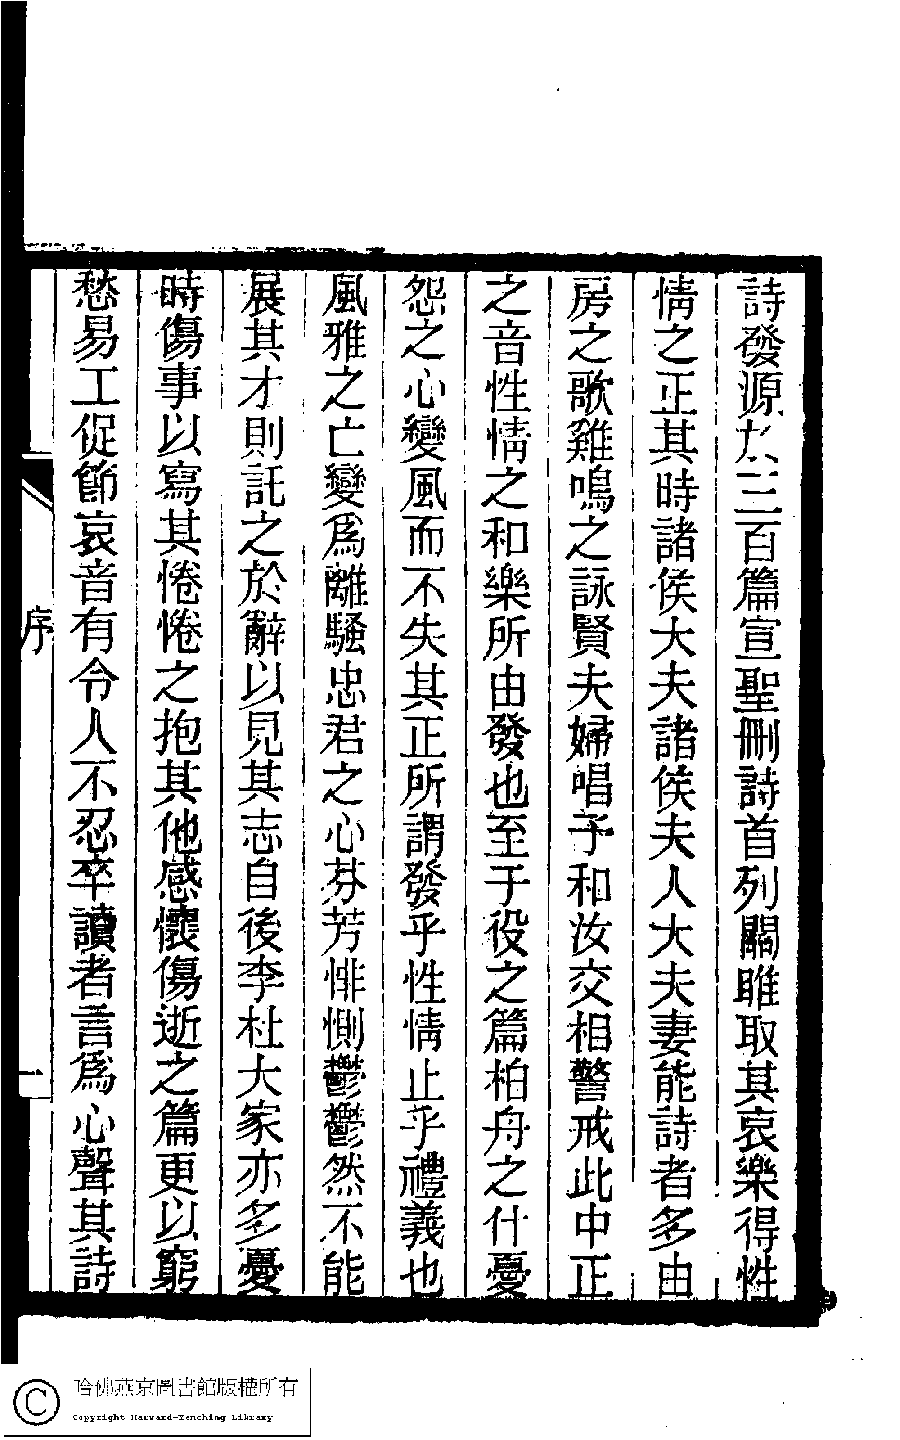 詩發源於三百篇宣聖刪詩首列關雎取其哀樂得性
情之正其時諸侯大夫諸侯夫人大夫妻能詩者多由
房之歌雞鳴之詠賢夫婦唱予和汝交相警戒此中正
之音性情之和樂所由發也至于役之篇柏舟之什憂
怨之心變風而不失其正所謂發乎性情止乎禮義也
風雅之亡變爲離騷忠君之心芬芳悱惻鬱鬱然不能
展其才則託之於辭以見其志自後李杜大家亦多憂
時傷事以寫其惓惓之抱其他感懷傷逝之篇更以窮
愁易工促節哀音有令人不忍卒讀者言爲心聲其詩
序
一
哈佛燕京圖書館版權所有
Copyright Harvard-Yenching Library